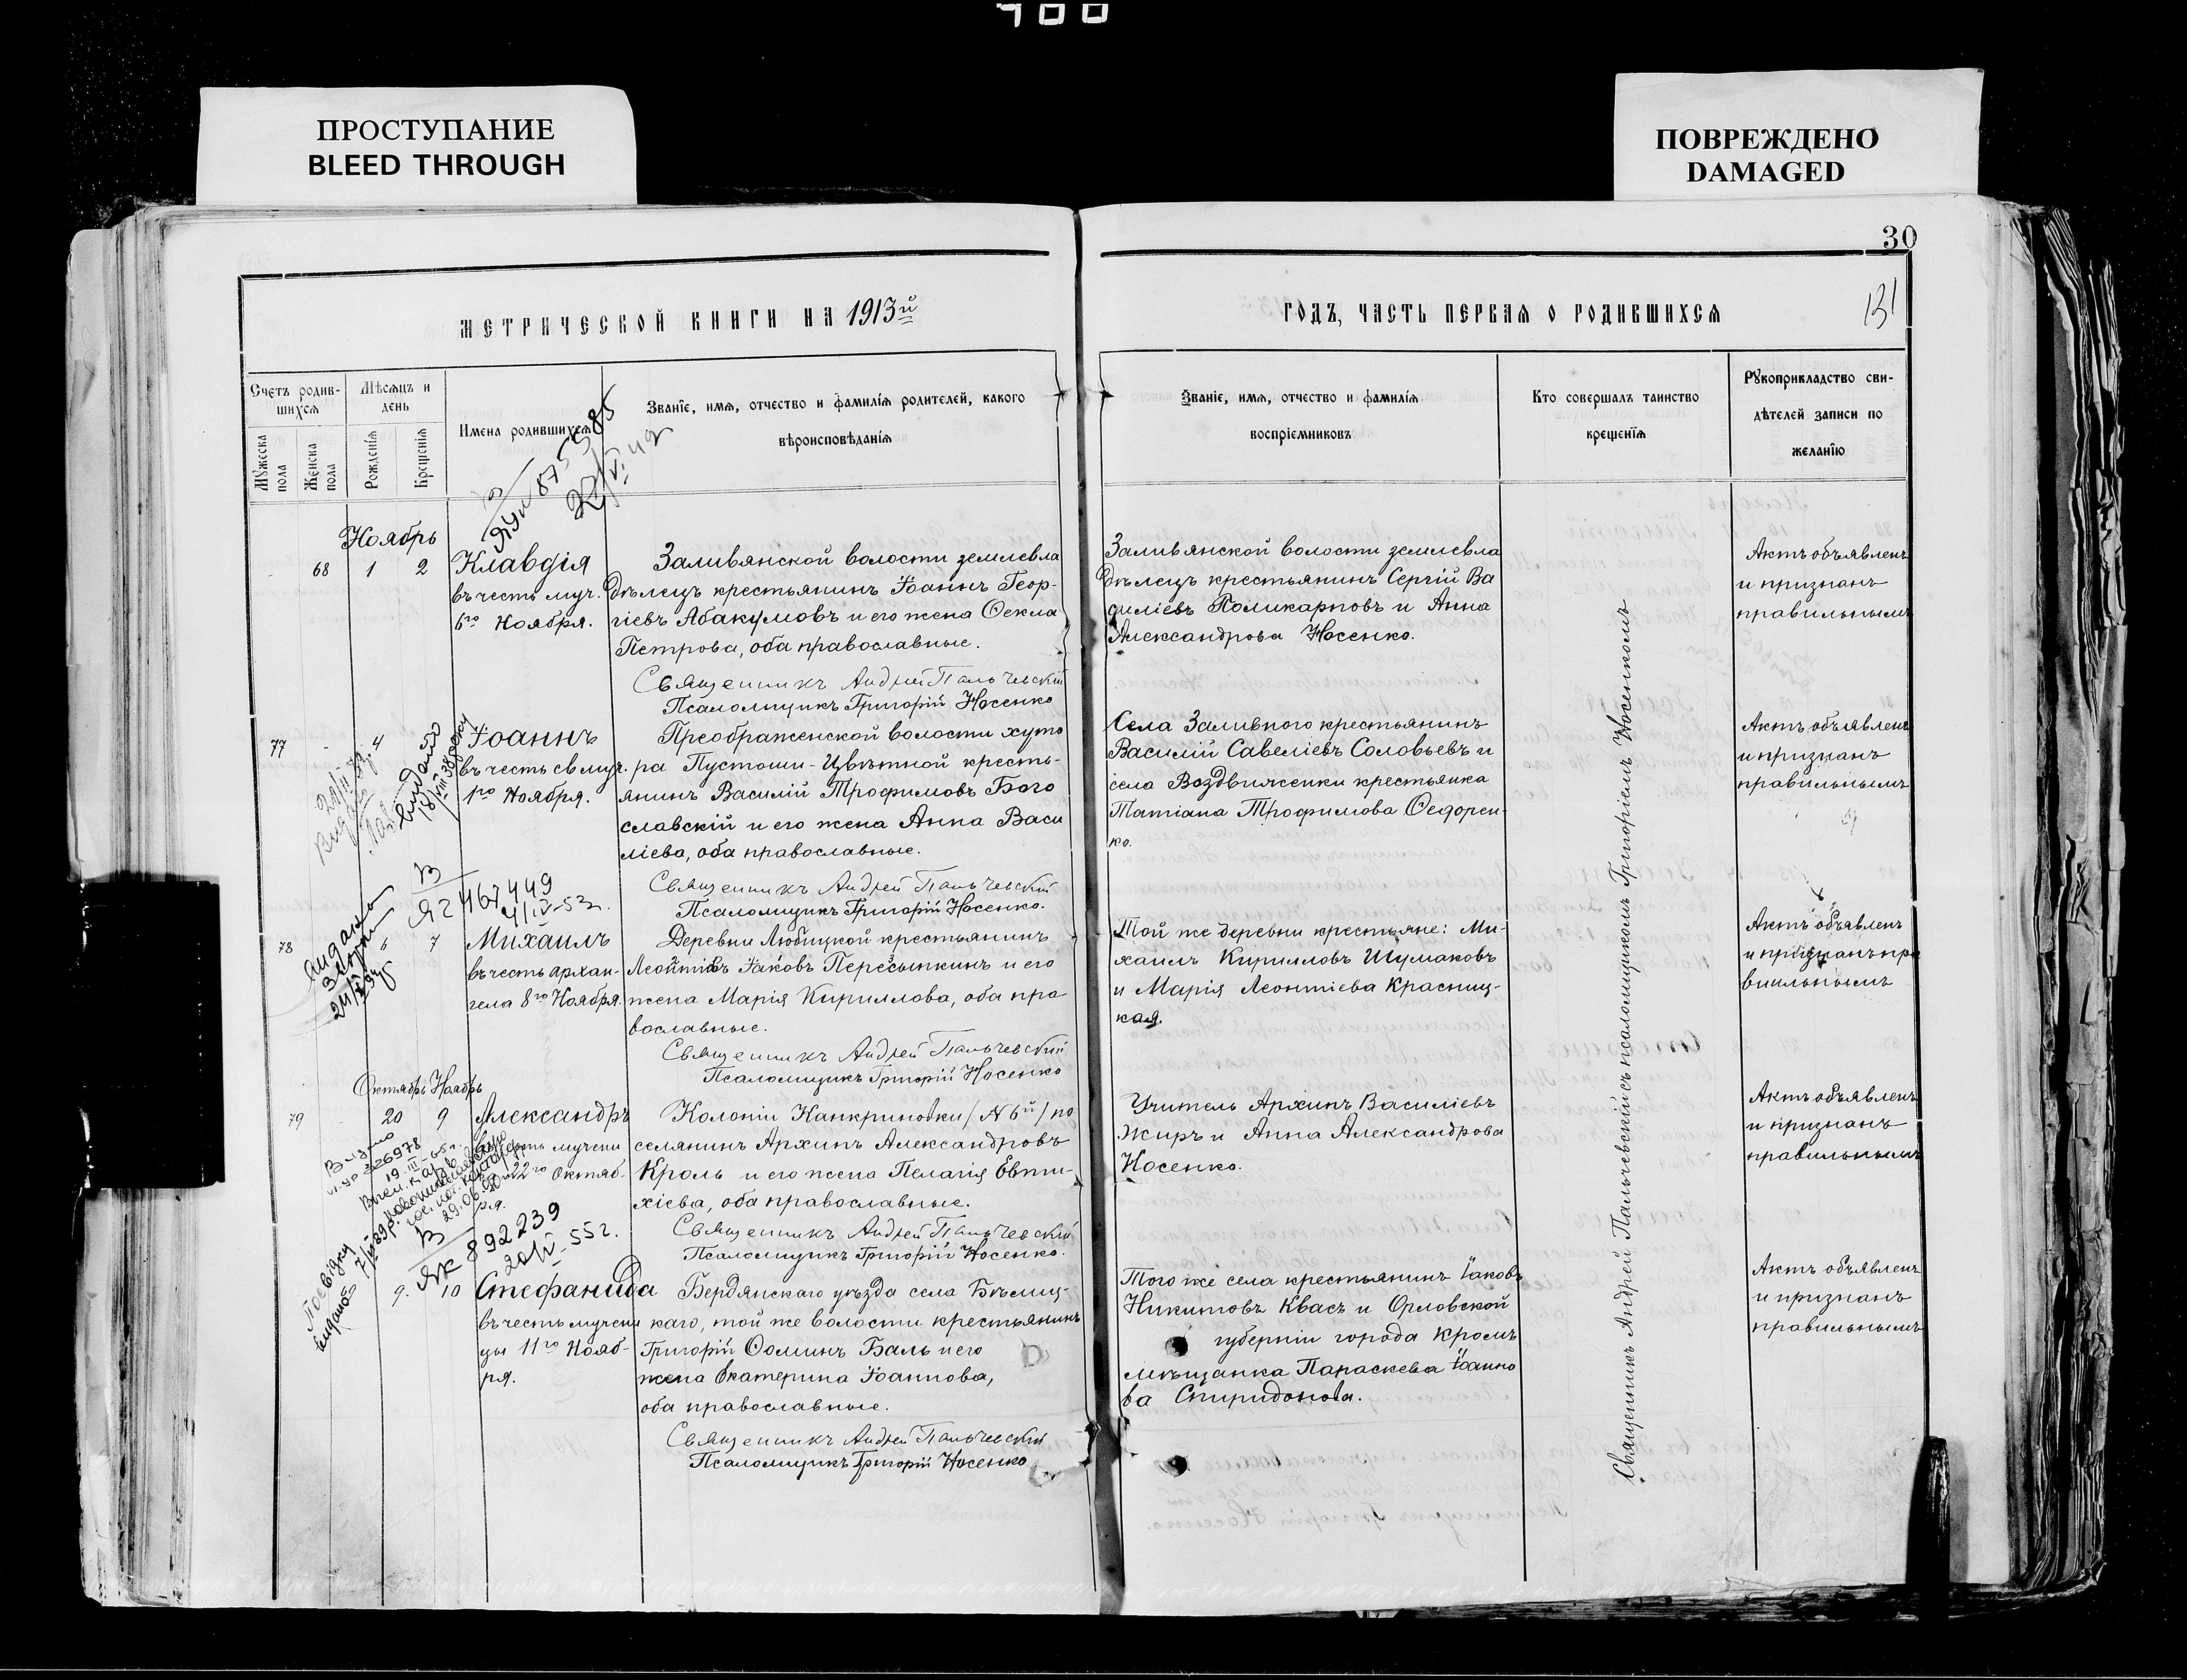 ПРОСТУПАНИЕ
BLEED THROUGH
ПОВРЕЖДЕНО
DAMAGED
30
131
МЕТРИЧЕСКОЙ КНИГИ НА 1913й
ГОДЪ, ЧАСТЬ ПЕРВАЯ О РОДИВШИХСЯ
Счетъ родив-
шихся
Мужеска
пола
Женска
пола
Мѣсяцъ и
день
Рожденія
Крещенія
Имена родившихся
Званіе, имя, отчество и фамилія родителей, какого
вѣроисповѣданія
Званіе, имя, отчество и фамилія
воспріемниковъ
Кто совершалъ таинство
крещенія
Рукоприкладство сви-
дѣтелей записи по
желанію
Ноябрь
68 1 2 Клавдія
въ честь муч.
6го Ноября.
Заливянской волости землевла
дѣлецъ крестьянинъ Іоаннъ Геор-
гіевъ Абакумовъ и его жена Ѳекла
Петрова, оба православные.
Священникъ Андрей Пальчевскій
Псаломщикъ Григорій Носенко
Заливянской волости землевла
дѣлецъ крестьянинъ Сергій Ва
силіевъ Поликарповъ и Анна
Александрова Носенко.
Актъ объявленъ
и признанъ
правильнымъ
77 - 4 Іоаннъ
въ честь св муч.
1го Ноября.
видано
Преображенской волости хуто
ра Пустоши-Цвѣтной кресть-
янинъ Василій Трофимовъ Бого
славскій и его жена Анна Васи
ліева, оба православные.
Священникъ Андрей Пальчевскій
Псаломщикъ Григорій Носенко.
Села Заливного крестьянинъ
Василій Савеліевъ Соловьевъ и
села Воздвиженки крестьянка
Татіана Трофимова Ѳедорен-
ко.
Актъ объявленъ
и признанъ
правильнымъ
В
ЯЗ 467449
78 6 7 Михаилъ
въ честь архан-
гела 8го Ноября.
Деревни Любицкой крестьянинъ
Леонтіевъ Іаковъ Пересыпкинъ и его
жена Марія Кириллова, оба пра
вославные.
Священникъ Андрей Пальчевскій
Псаломщикъ Григорій Носенко
Той же деревни крестьяне: Ми-
хаилъ Кирилловъ Шумаковъ
и Марія Леонтіева Красниц-
кая.
Актъ объявленъ
и признанъ пра
вильнымъ
Октябрь Ноябрь
79 20 9 Александръ
въ честь мучени
22го Октяб-
ря.
Колоніи Канкриновки /№ 6й/ по
селянинъ Архипъ Александровъ
Кроль и его жена Пелагія Евти-
хіева, оба православные.
Священникъ Андрей Пальчевскій
Псаломщикъ Григорій Носенко.
Учитель Архипъ Василіевъ
Жиръ и Анна Александрова
Носенко.
Актъ объявленъ
и признанъ
правильнымъ
В
ЯК 892239
55 г.
9. 10 Стефанида
въ честь мучени
цы 11го Нояб-
ря.
Бердянскаго уѣзда села Бѣлиц-
каго, той же волости крестьянинъ
Григорій Ѳоминъ Баль и его
жена Екатерина Іоаннова,
оба православные.
Священникъ Андрей Пальчевскій
Псаломщикъ Григорій Носенко
Того же села крестьянинъ Іаковъ
Никитовъ Квасъ и Орловской
губерніи города Кромъ
мѣщанка Параскева Іоанно
ва Спиридонова.
Актъ объявленъ
и признанъ
правильнымъ
Священникъ Андрей Пальчевскій съ псаломщикомъ Григоріемъ Носенкомъ